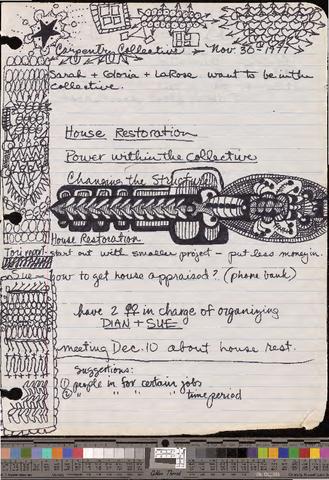 Carpentry Collective → Nov. 30th 1977
Sarah + Gloria + LaRose want to be in the
collective.
House Restoration
Power within the collective
Changing the Structure
House Restoration
Tori read - start out with smaller project - put less money in.
Sue - how to get house appraised? (phone bank)
have 2 ♀♀ in charge of organizing
DIAN + SUE
meeting Dec. 10 about house rest.
Suggestions:
① people in for certain jobs
② " " " " time period